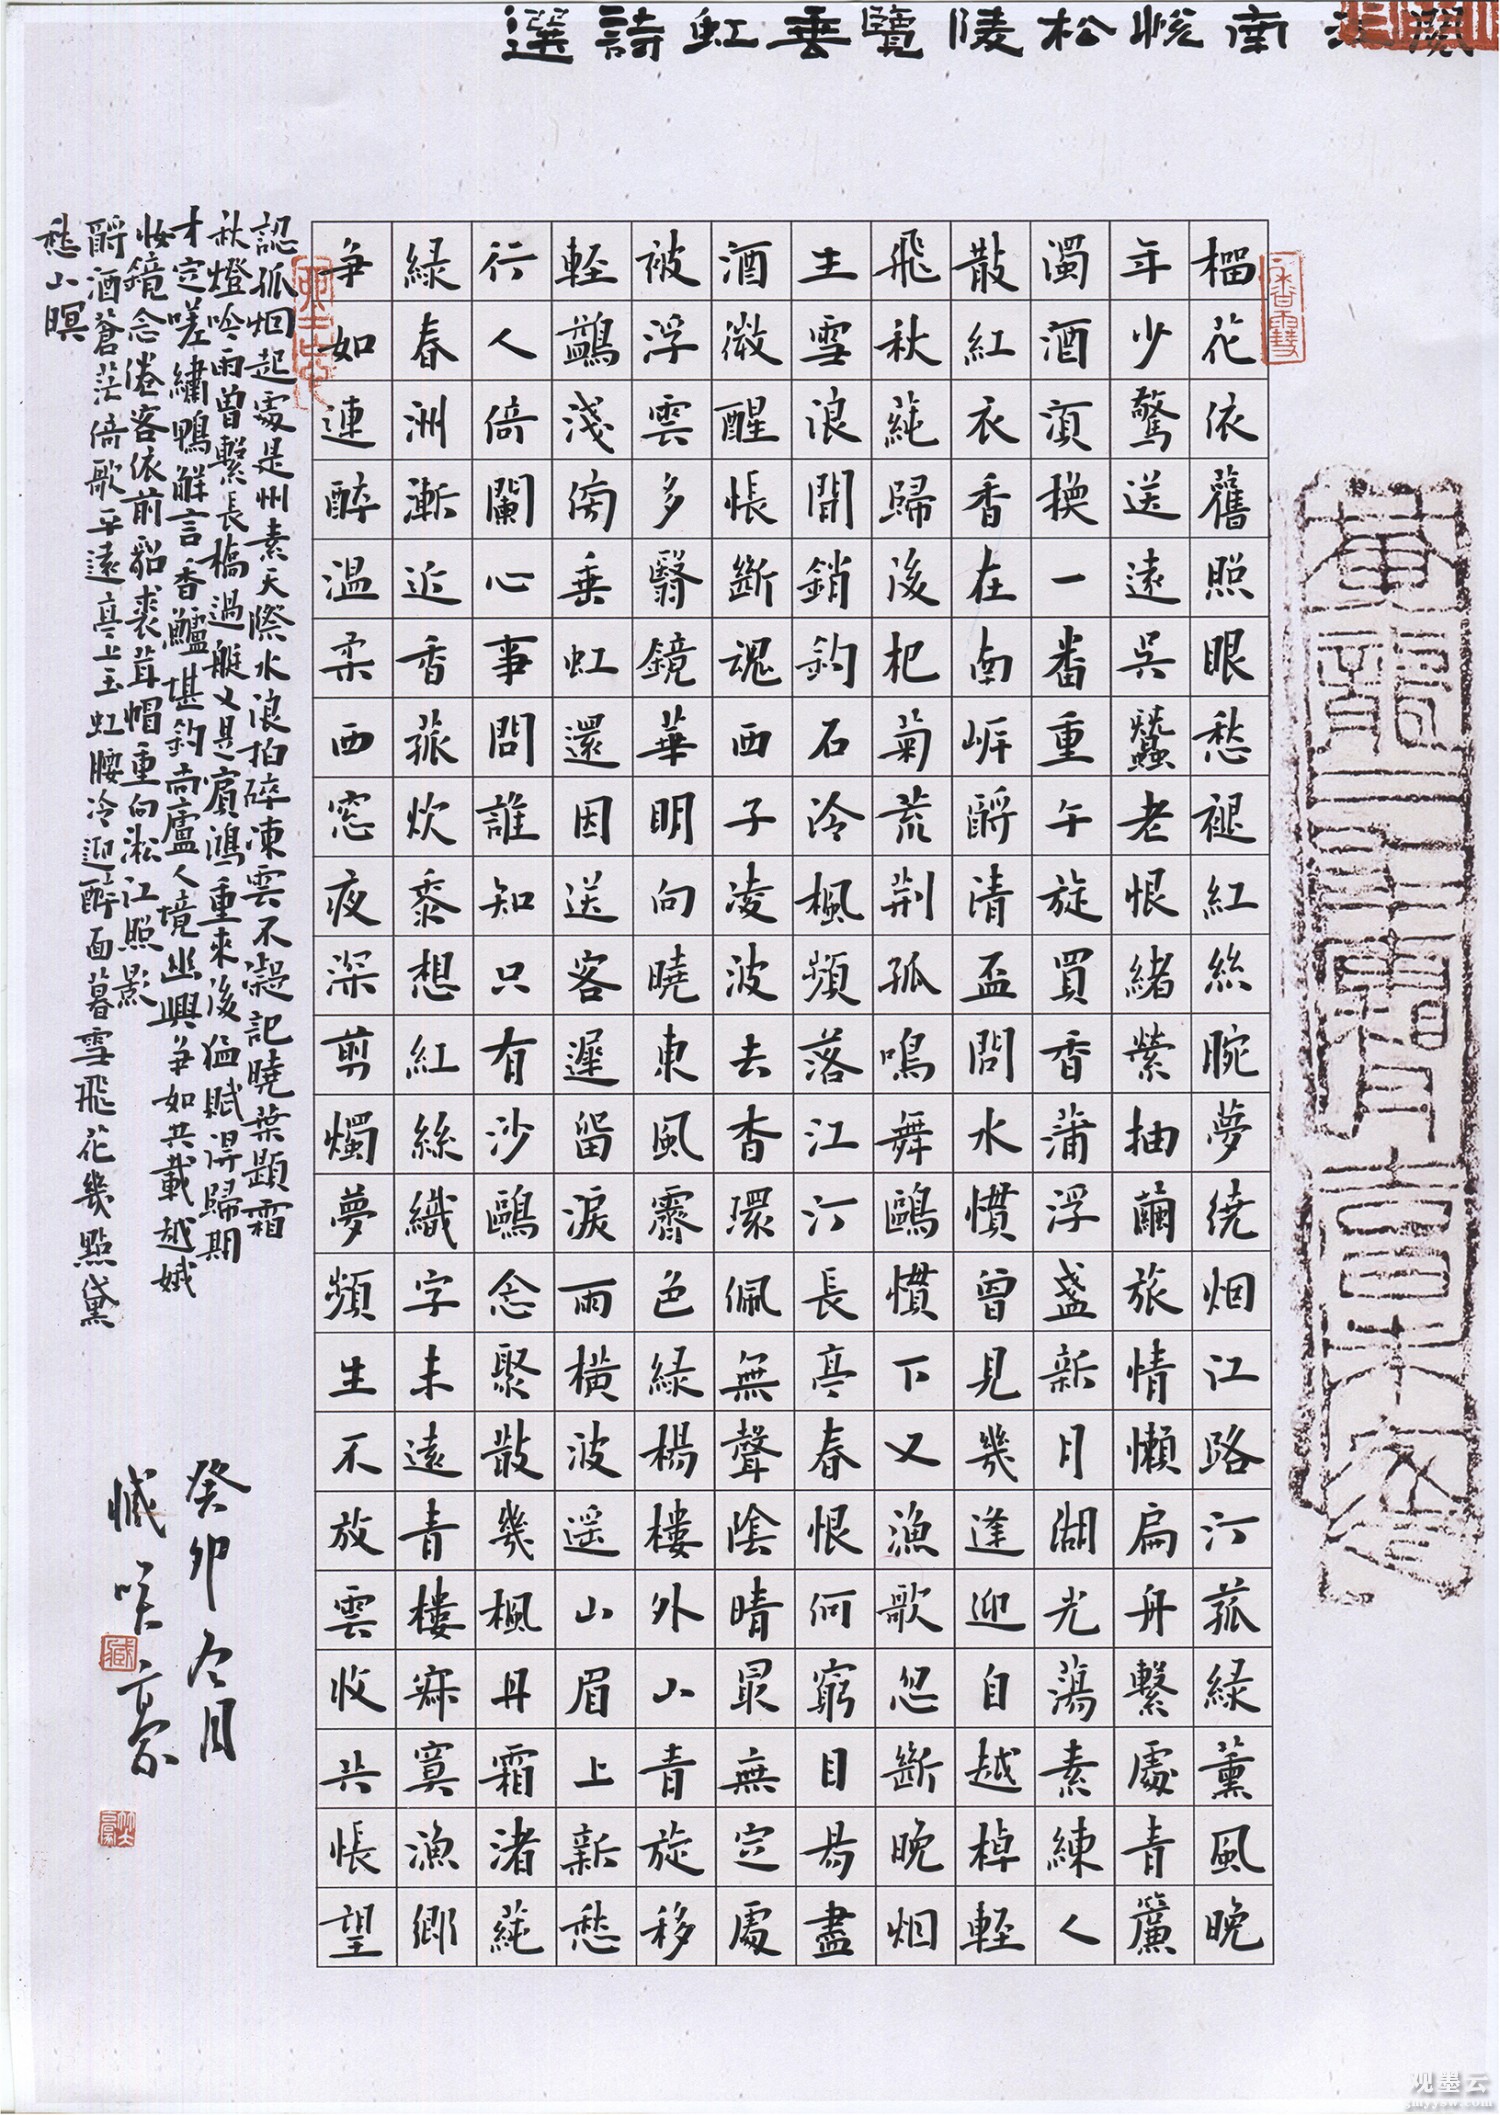 南悅松陵覽垂虹詩選
榴花依舊照眼愁褪紅絲腕夢繞烟江路汀菰綠薰風晚
年少驚送遠吳蠶老恨緒縈抽繭旅情懶扁舟繫處青簾
濁酒須換一番重午旋買香蒲浮盞新月湖光蕩素練人
散紅衣香在南岸酹清盃問水慣曾見幾逢迎自越棹輕
飛秋蒓歸後杞菊荒荆孤鳴舞鷗慣下又漁歌忽斷晚烟
生雪浪間銷釣石冷楓頻落江汀長亭春恨何窮目易盡
酒微醒悵斷魂西子凌波去杳環佩無聲陰晴最無定處
被浮雲多翳鏡華明向曉東風霽色綠楊樓外山青旋移
輕鷁淺傍垂虹還因送客遲留淚雨橫波遥山眉上新愁
行人倚闌心事問誰知只有沙鷗念聚散幾楓丹霜渚蒓
綠春洲漸近香菰炊黍想紅絲織字未遠青樓寂寞漁鄉
爭如連醉溫柔西窓夜深剪燭夢頻生不放雲收共悵望
認孤烟起處是州素天際水浪拍碎凍雲不凝記曉葉題霜
秋燈吟雨曾繫長橋過艇又是賓鴻重來後猛賦得歸期
才定嗟繡鴨解言香鱸堪釣尚廬人境幽興爭如共載越娥
妝鏡念倦客依前貂裘茸帽重向淞江照影
酹酒蒼茫倚歌平遠亭上玉虹腰冷迎醉面暮雪飛花幾點黛
愁山暝
癸卯冬月
观墨云